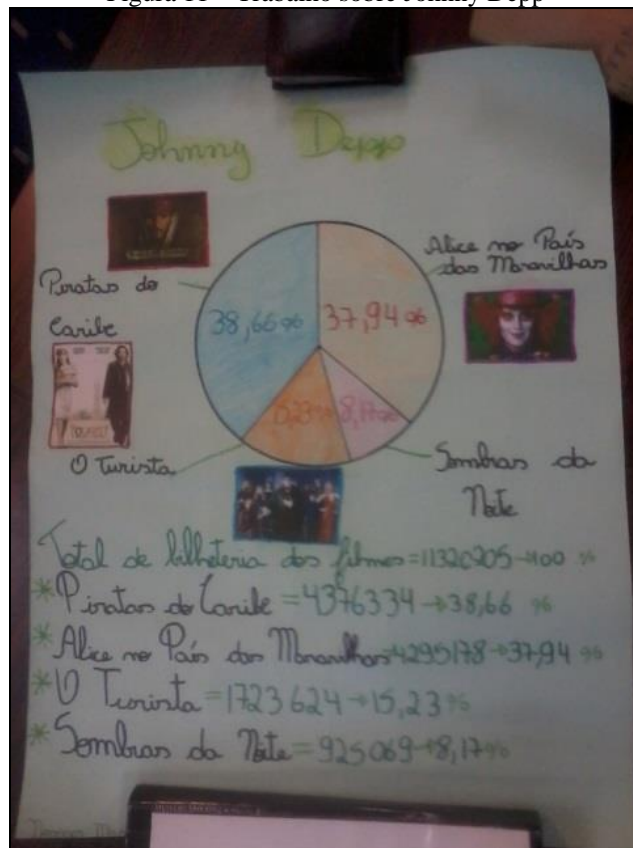 Johnny Depp
Piratas do
Caribe
38,66%
37,94%
Alice no País
das Maravilhas
15,23%
8,17%
O Turista
Sombras da
Noite
Total de bilheteria dos filmes=11320205→100 %
*Piratas do Caribe=4376334→38,66 %
*Alice no País das Maravilhas=4295178→37,94 %
*O Turista=1723624→15,23%
*Sombras da Noite=925069→8,17%